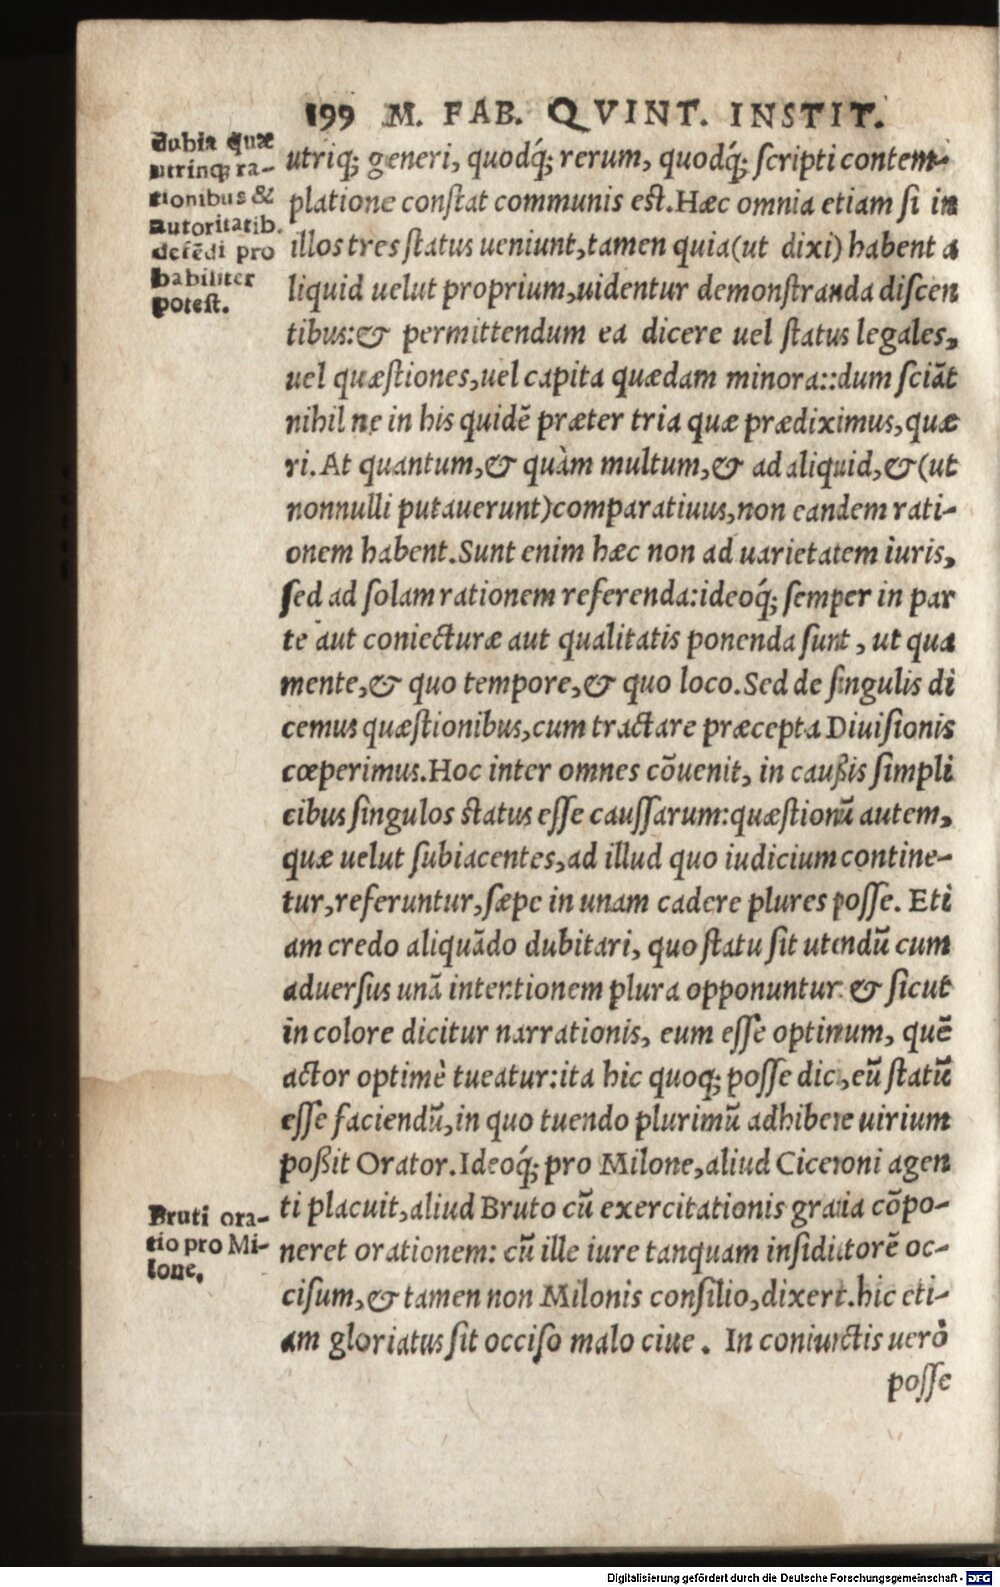 199 M. FAB. QVINT. INSTIT.
dubia quæ
utrinq; ra-
tionibus &
autoritatib.
defẽdi pro
babiliter
potest.
utriq; generi, quodq́; rerum, quodq́; scripti contem-
platione constat communis est. Hæc omnia etiam si in
illos tres status ueniunt, tamen quia (ut dixi) habent a
liquid uelut proprium, uidentur demonstranda discen
tibus: & permittendum ea dicere uel status legales,
uel quæstiones, uel capita quædam minora:: dum sciãt
nihil ne in his quidẽ præter tria quæ prædiximus, quæ
ri. At quantum, & quàm multum, & ad aliquid, & (ut
nonnulli putauerunt) comparatiuus, non eandem rati-
onem habent. Sunt enim hæc non ad uarietatem iuris,
sed ad solam rationem referenda: ideoq́; semper in par
te aut coniecturæ aut qualitatis ponenda sunt, ut qua
mente, & quo tempore, & quo loco. Sed de singulis di
cemus quæstionibus, cum tractare præcepta Diuisionis
cœperimus. Hoc inter omnes cõuenit, in caußis simpli
cibus singulos status esse caussarum: quæstionũ autem,
quæ uelut subiacentes, ad illud quo iudicium contine-
tur, referuntur, sæpe in unam cadere plures posse. Eti
am credo aliquãdo dubitari, quo statu sit utendũ cum
aduersus unã intentionem plura opponuntur: & sicut
in colore dicitur narrationis, eum esse optimum, quẽ
actor optimè tueatur: ita hic quoq; posse dici, eũ statũ
esse faciendũ, in quo tuendo plurimũ adhibere uirium
poßit Orator. Ideoq́; pro Milone, aliud Ciceroni agen
ti placuit, aliud Bruto cũ exercitationis gratia cõpo-
neret orationem: cũ ille iure tanquam insidiatorẽ oc-
cisum, & tamen non Milonis consilio, dixerit. hic eti-
am gloriatus sit occiso malo ciue. In coniunctis uerò
posse
Bruti ora-
tio pro Mi-
lone.
Digitalisierung gefördert durch die Deutsche Forschungsgemeinschaft - DFG